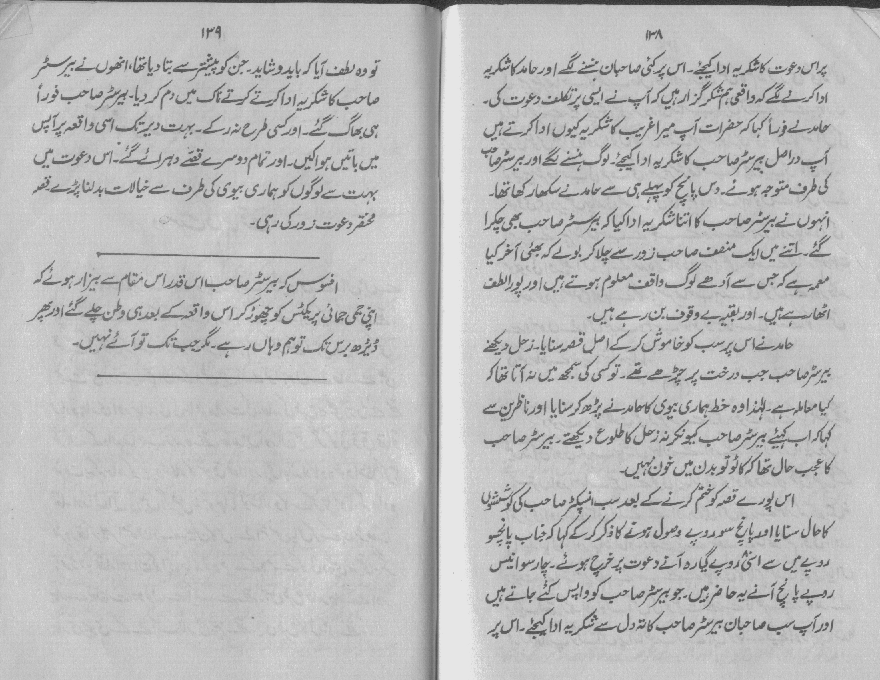 ۱۳۸
پر اس دعوت کا شکریہ ادا کیجئے۔ اس پر کئی صاحبان ہنسنے لگے اور حامد کا شکریہ
ادا کرنے لگے کہ واقعی ہم شکر گزار ہیں کہ آپ نے ایسی پر تکلف دعوت کی۔
حامد نے فوراً کہا کہ حضرات آپ میرا غریب کا شکریہ کیوں ادا کرتے ہیں
آپ دراصل بیرسٹر صاحب کا شکریہ ادا کیجئے۔ لوگ ہنسنے لگے اور بیرسٹر صاحب
کی طرف متوجہ ہوئے۔ دس پانچ کو پہلے ہی سے حامد نے سکھا رکھا تھا۔
انہوں نے بیرسٹر صاحب کا اتنا شکریہ ادا کیا کہ بیرسٹر صاحب بھی چکرا
گئے۔ اتنے میں ایک منصف صاحب زور سے چلا کر بولے کہ بھئی آخر کیا
معمہ ہے کہ جس سے آدھے لوگ واقف معلوم ہوتے ہیں اور پورا لطف
اٹھا رہے ہیں۔ اور بقیہ بے وقوف بن رہے ہیں۔
حامد نے اس پر سب کو خاموش کر کے اصل قصہ سنایا۔ زحل دیکھنے
بیرسٹر صاحب جب درخت پر چڑھے تھے۔ تو کسی کی سمجھ میں نہ آتا تھا کہ
کیا معاملہ ہے۔ لہٰذا وہ خط ہماری بیوی کا حامد نے پڑھ کر سنایا اور ناظرین سے
کہا کہ اب کہیئے بیرسٹر صاحب کیونکر نہ زحل کا طلوع دیکھتے۔ بیرسٹر صاحب
کا عجب حال تھا کہ کاٹو تو بدن میں خون نہیں۔
اس پورے قصہ کو ختم کرنے کے بعد سب انسپکٹر صاحب کی کوششوں
کا حال سنایا اور پانچ سو روپے وصول ہونے کا ذکر کر کے کہا کہ جناب پانچسو
روپے میں سے اسی روپے گیارہ آنے دعوت پر خرچ ہوئے۔ چار سو انیس
روپے پانچ آنے یہ حاضر ہیں۔ جو بیرسٹر صاحب کو واپس کئے جاتے ہیں
اور آپ سب صاحبان بیرسٹر صاحب کا تہ دل سے شکریہ ادا کیجئے۔ اس پر
۱۳۹
تو وہ لطف آیا کہ باید و شاید۔ جن کو پیشتر سے بتا دیا تھا، انھوں نے بیرسٹر
صاحب کا شکریہ ادا کرتے کرتے ناک میں دم کر دیا۔ بیرسٹر صاحب فوراً
ہی بھاگ گئے۔ اور کسی طرح نہ رکے۔ بہت دیر تک اسی واقعہ پر آپس
میں باتیں ہوا کیں۔ اور تمام دوسرے قصے دہرائے گئے۔ اس دعوت میں
بہت سے لوگوں کو ہماری بیوی کی طرف سے خیالات بدلنا پڑے قصہ
مختصر دعوت زور کی رہی۔
افسوس کہ بیرسٹر صاحب اس قدر اس مقام سے بیزار ہوئے کہ
اپنی جمی جمائی پریکٹس کو چھوڑ کر اس واقعہ کے بعد ہی وطن چلے گئے اور پھر
ڈیڑھ برس تک تو ہم وہاں رہے۔ مگر جب تک تو آئے نہیں۔